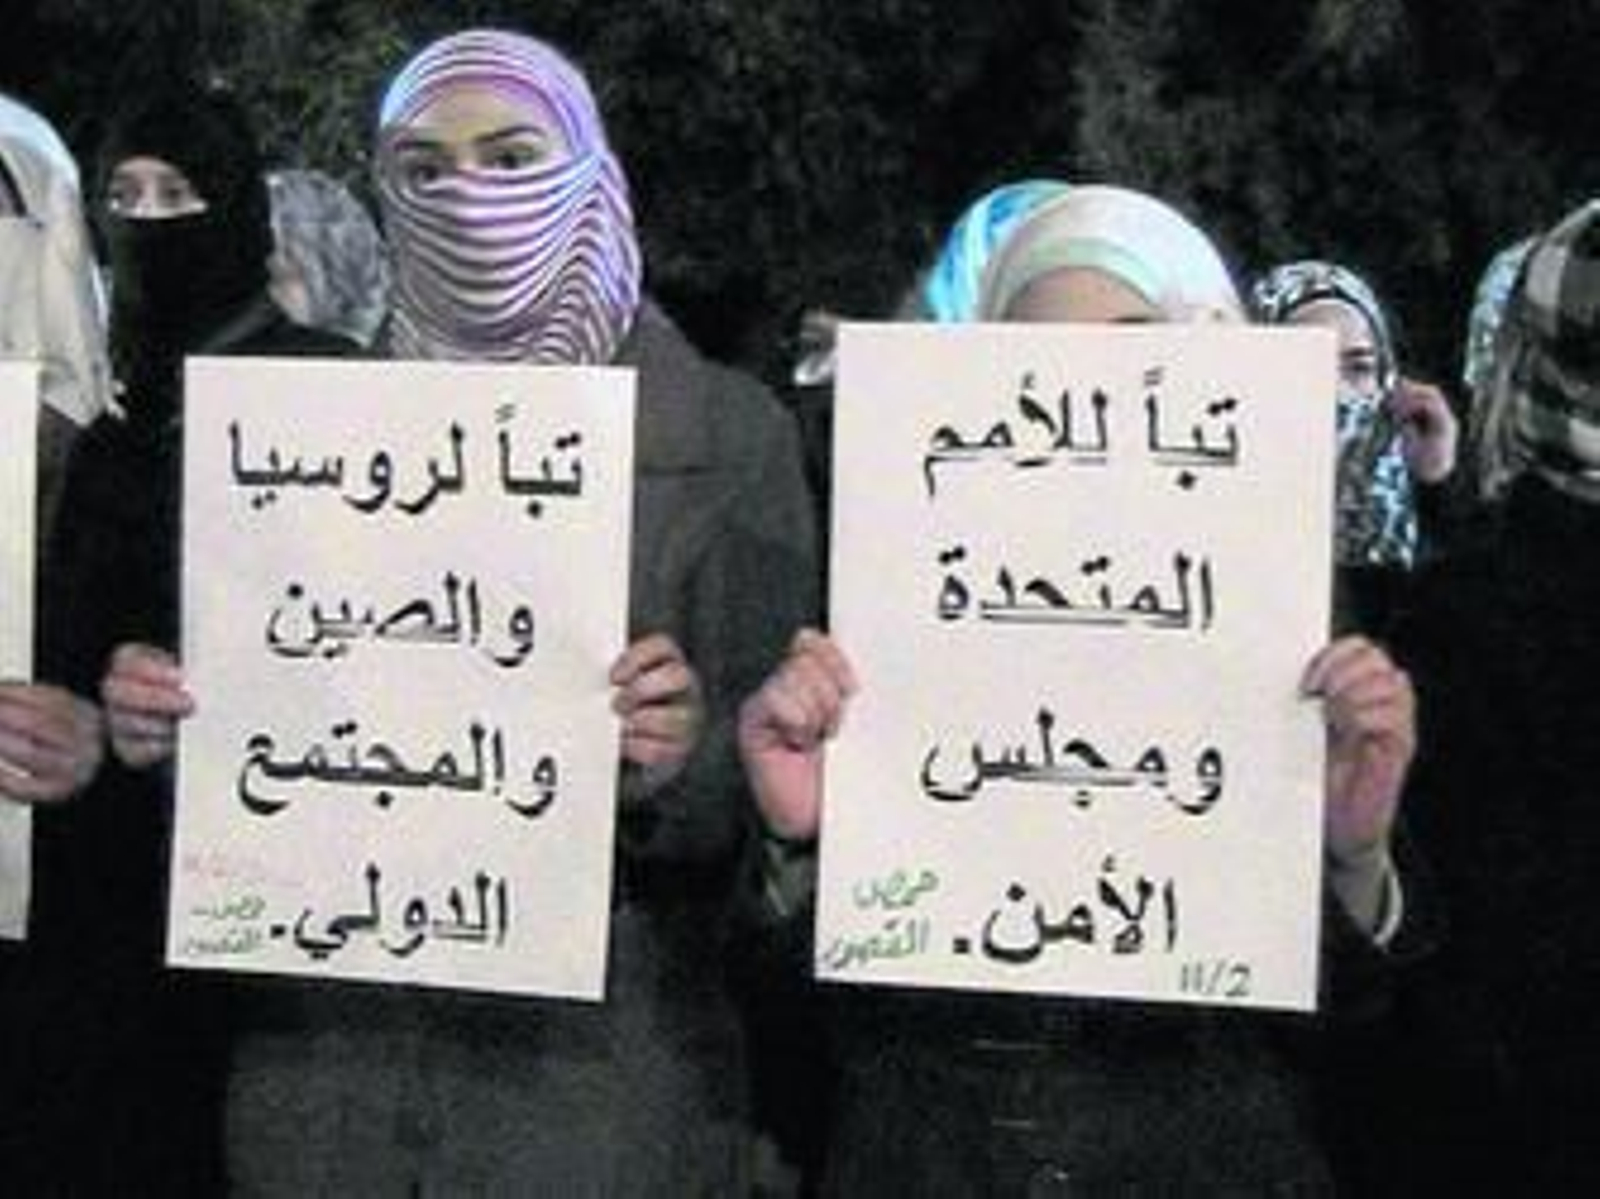 تباً للأمم
المتحدة
ومجلس
الأمن.
حمص
القصور
11/2
تباً لروسيا
والصين
والمجتمع
الدولي.
حمص
القصور